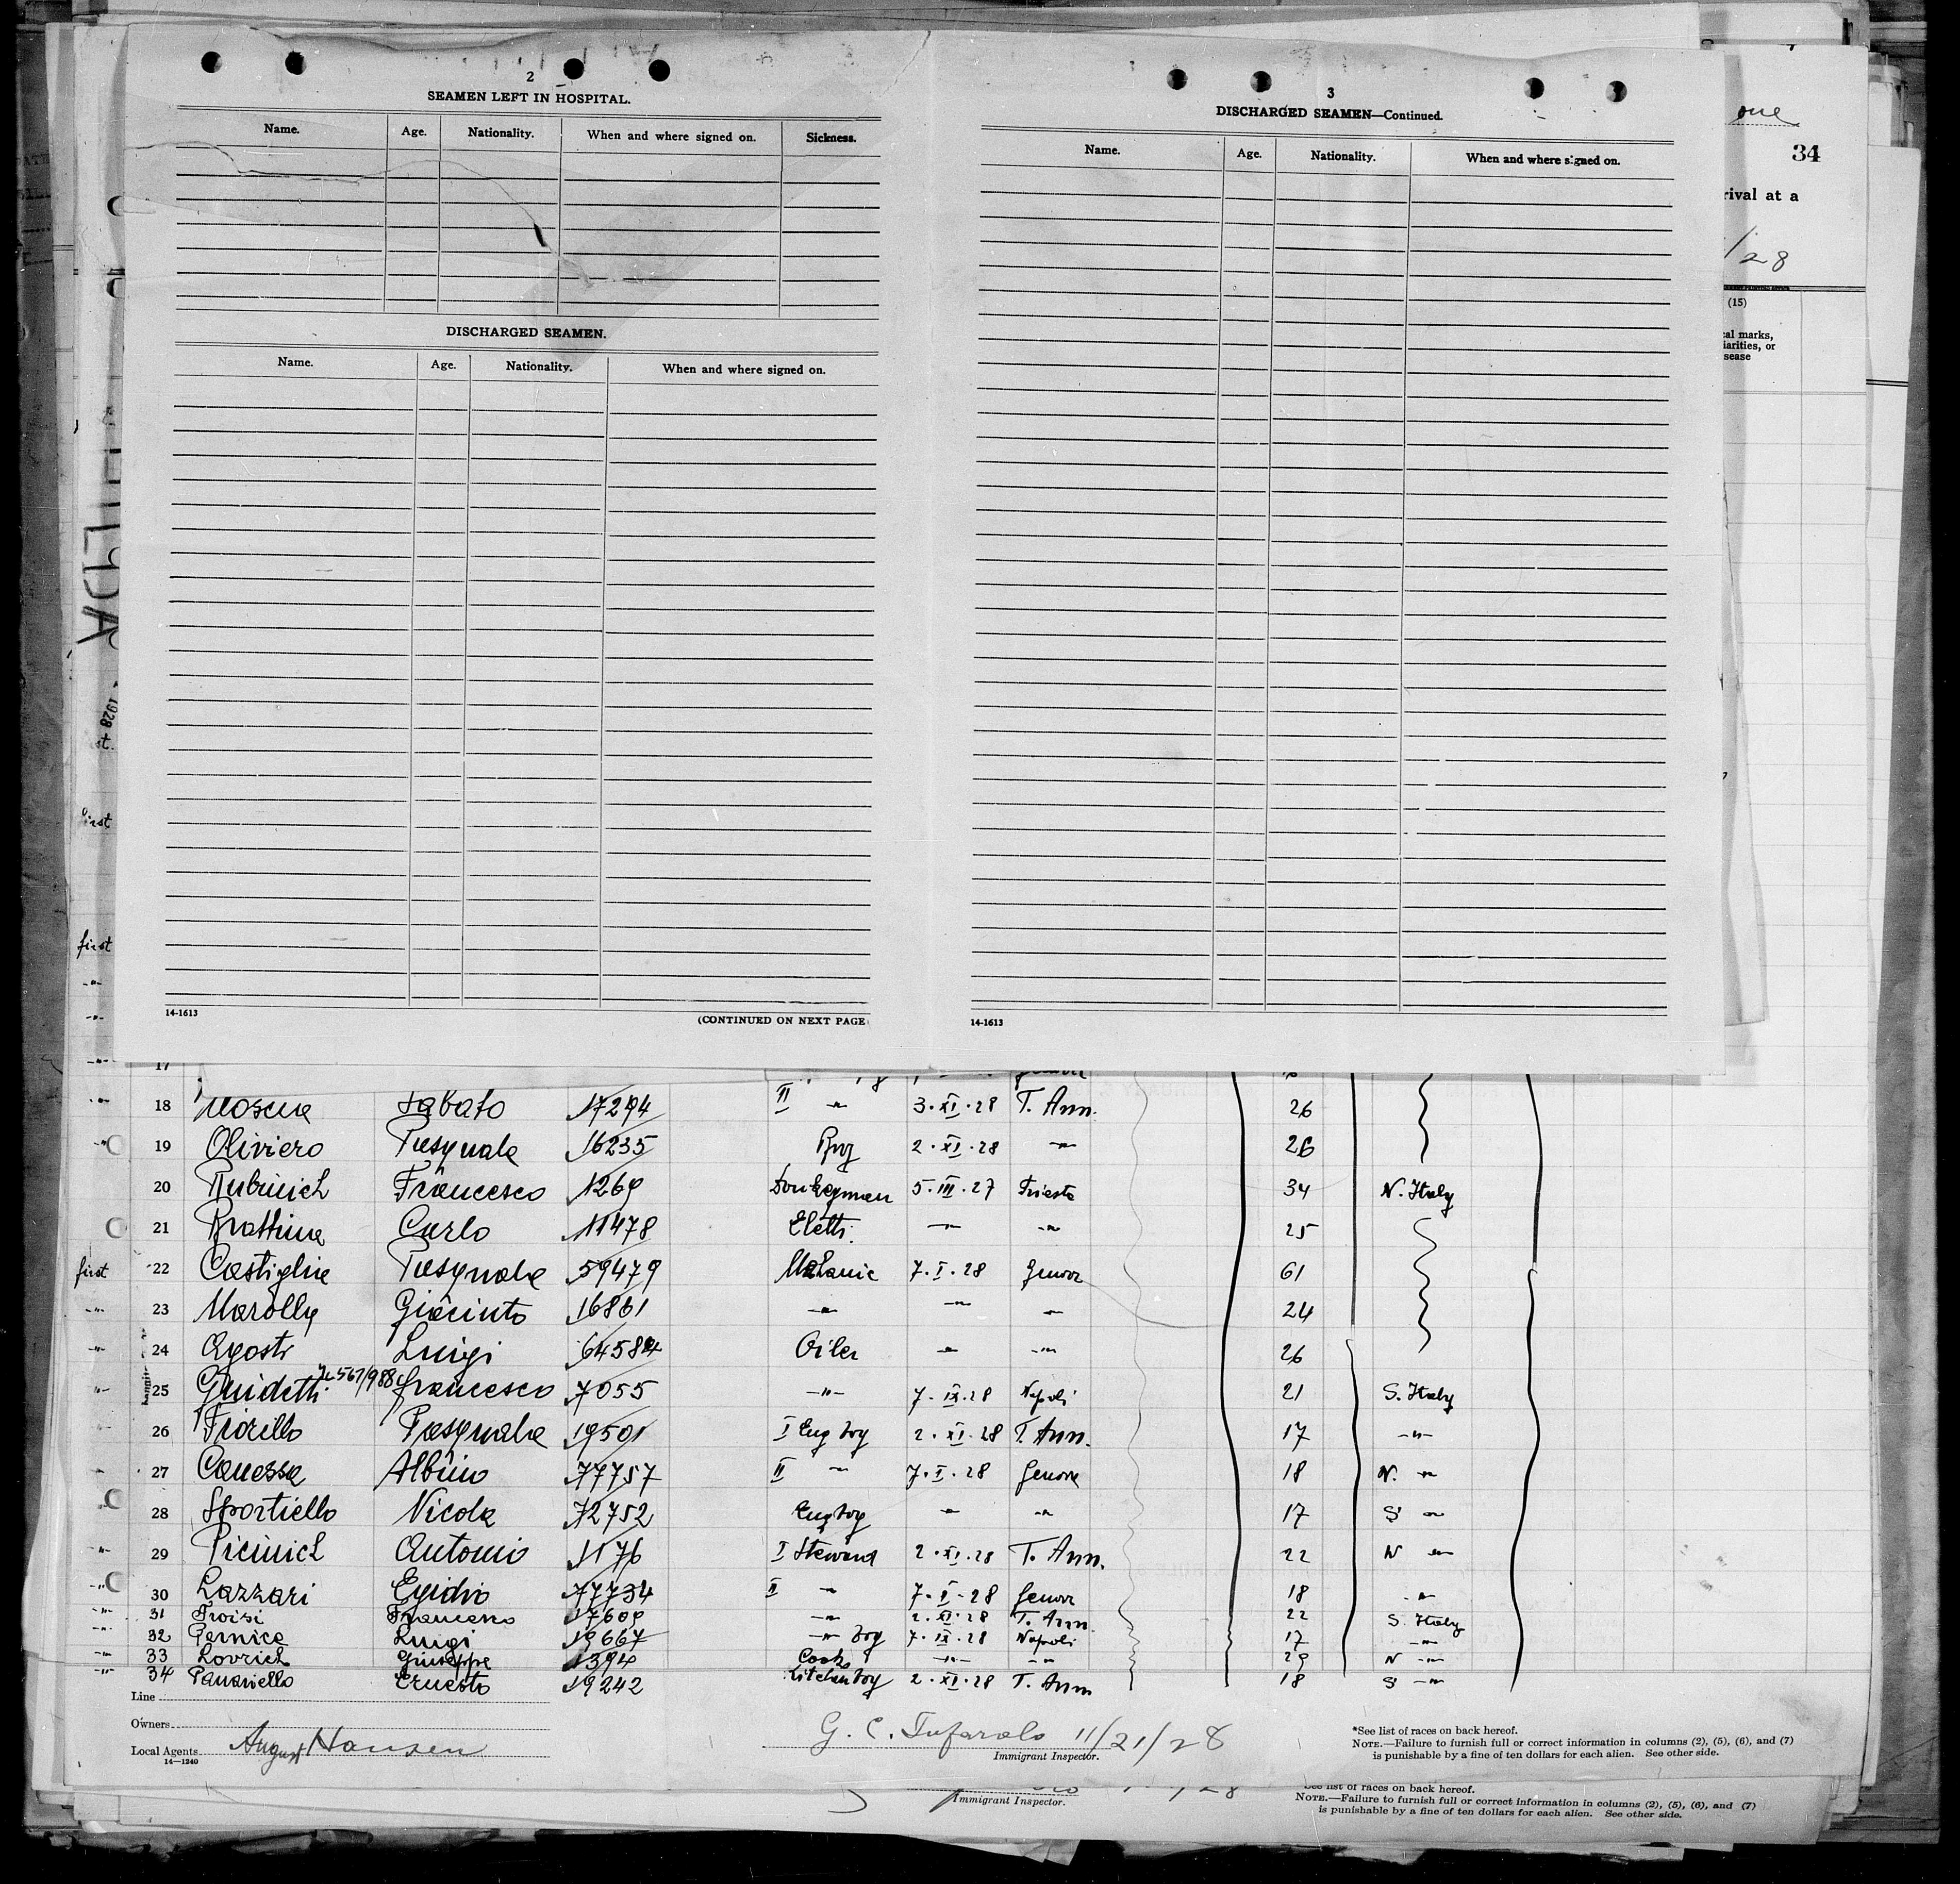 2
SEAMEN LEFT IN HOSPITAL.
Name. Age. Nationality. When and where signed on. Sickness.
DISCHARGED SEAMEN.
Name. Age. Nationality. When and where signed on.
14-1613 (CONTINUED ON NEXT PAGE
3
DISCHARGED SEAMEN—Continued.
Name. Age. Nationality. When and where signed on.
14-1613
one
34
rival at a
/28
(15)
cal marks,
iarities, or
sease
1928
first
first
17
18 Sabato 17294 II -"- 3·XI·28 T. Ann. 26
-"- 19 Oliviero Pasquale 16235 2·XI·28 -"- 26
20 Francesco 1269 Donkeyman 5·III·27 Trieste 34 N. Italy
21 Carlo 11478 Elettr. -"- -"- 25
first 22 Pasquale 59479 7·I·28 Genova 61
-"- 23 Giacinto 16861 -"- -"- -"- 24
-"- 24 Agosti Luigi 64584 Oiler -"- -"- 26
-"- 25 Guidetti Francesco 7055 -"- 7·IX·28 Napoli 21 S. Italy
26 Fiorello Pasquale 19501 I Eng boy 2·XI·28 T. Ann. 17 -"-
27 Canessa Albino 77757 II -"- 7·I·28 Genova 18 N. -"-
28 Sportiello Nicola 72752 Eng boy -"- -"- 17 S -"-
-"- 29 Picinich Antonio 1176 I Steward 2·XI·28 T. Ann. 22 N -"-
-"- 30 Lazzari Egidio 77734 II -"- 7·I·28 Genova 18 -"-
-"- 31 Troisi Francesco 17609 -"- 2·XI·28 T. Ann 22 S. Italy
-"- 32 Pernice Luigi 19667 -"- boy 7·IX·28 Napoli 17 -"-
-"- 33 Lovrich Giuseppe 1394 Cook -"- -"- 29 N -"-
-"- 34 Panariello Ernesto 19242 Kitchenboy 2·XI·28 T. Ann 18 S -"-
Line
Owners
Local Agents August Hansen
14—1240
11/21/28
Immigrant Inspector.
*See list of races on back hereof.
NOTE.—Failure to furnish full or correct information in columns (2), (5), (6), and (7)
is punishable by a fine of ten dollars for each alien. See other side.
Immigrant Inspector.
See list of races on back hereof.
NOTE.—Failure to furnish full or correct information in columns (2), (5), (6), and (7)
is punishable by a fine of ten dollars for each alien. See other side.